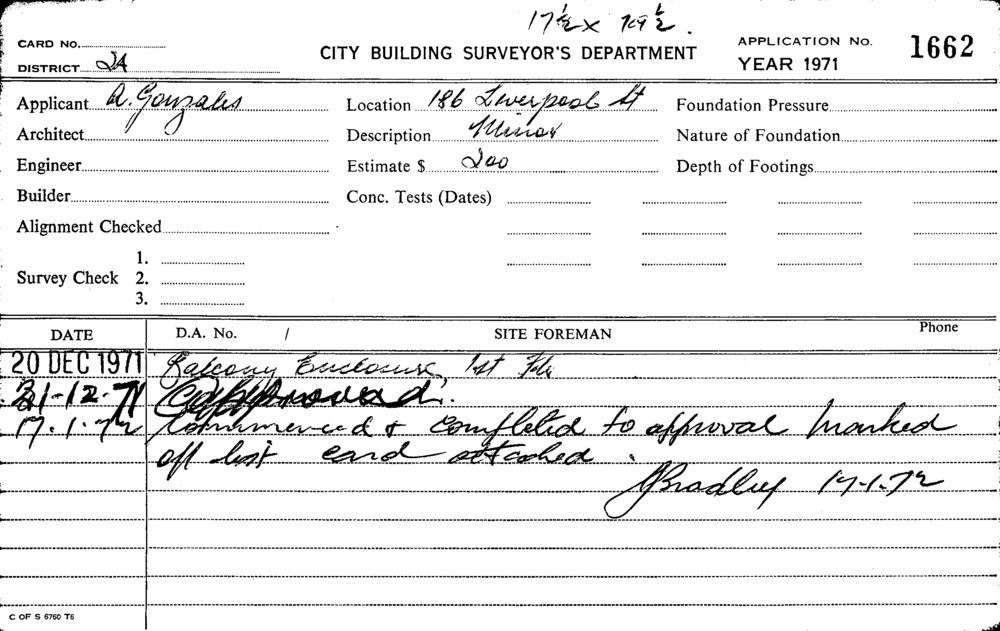 17½ x 7'9½.
CARD No.
DISTRICT 2A
CITY BUILDING SURVEYOR'S DEPARTMENT
APPLICATION No. 1662
YEAR 1971
Applicant A. Gonzales
Location 186 Liverpool St
Foundation Pressure
Architect
Description Minor
Nature of Foundation
Engineer
Estimate $ 200
Depth of Footings
Builder
Conc. Tests (Dates)
Alignment Checked
Survey Check 1.
2.
3.
DATE D.A. No. / SITE FOREMAN Phone
20 DEC 1971 Balcony Enclosure 1st Flr
21-12-71 Approved.
17.1.72 Commenced & completed to approval marked
off list card attached.
JBradley 17-1-72
C OF S 6760 T6